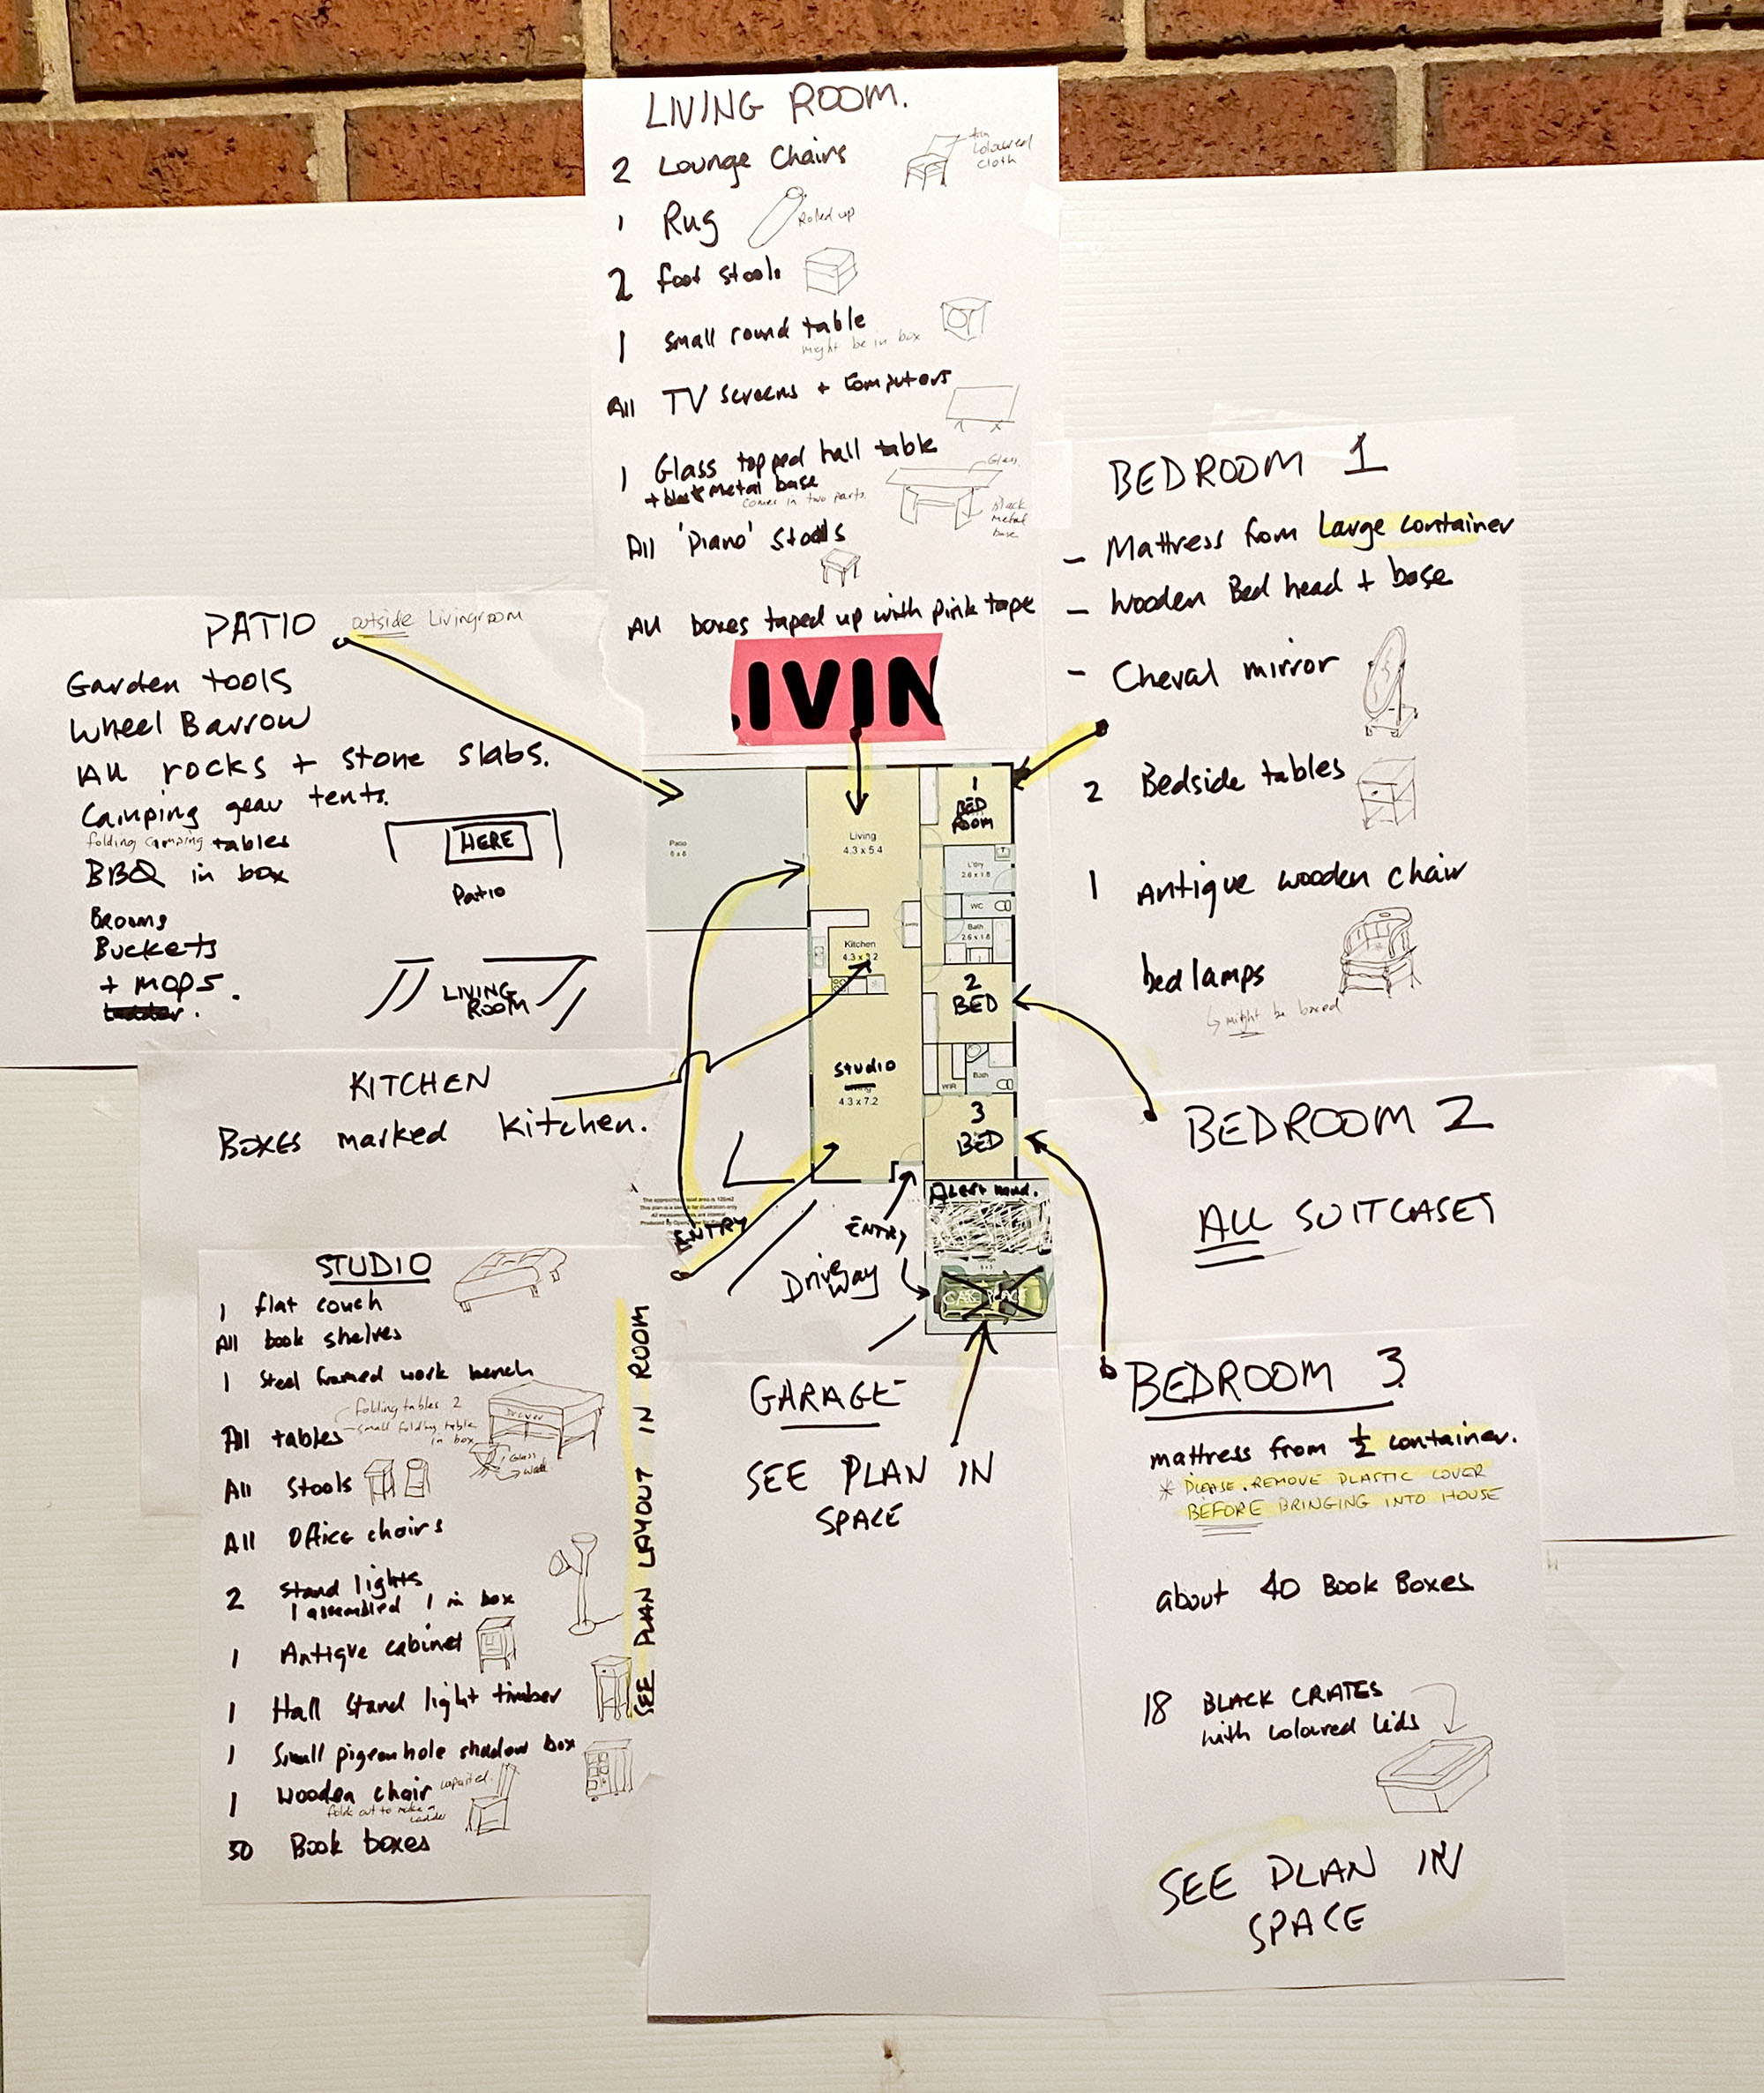 LIVING ROOM.
2 Lounge Chairs
tan coloured cloth
1 Rug
Rolled up
2 foot stools
1 small round table
might be in box
All TV screens + computors
1 Glass topped hall table
+ black metal base
comes in two parts.
Glass
black metal base
All 'Piano' Stools
All boxes taped up with pink tape
LIVIN
PATIO
outside Livingroom
Garden tools
Wheel Barrow
All rocks + stone slabs.
Camping gear tents.
folding camping tables
BBQ in box
Brooms
Buckets
+ mops.
HERE
Patio
LIVING ROOM
KITCHEN
Boxes marked Kitchen.
STUDIO
1 flat couch
All book shelves
1 Steel framed work bench
All tables
folding tables 2
small folding table
in box
Glass
All Stools
All Office chairs
2 Stand lights
1 assembled 1 in box
1 Antique cabinet
1 Hall Stand light timber
1 Small pigeonhole shadow box
1 Wooden chair
folds out to make a ladder
50 Book boxes
SEE PLAN LAYOUT IN ROOM
BEDROOM 1
- Mattress from Large container
- Wooden Bed head + base
- Cheval mirror
2 Bedside tables
1 Antique wooden chair
bed lamps
might be boxed
BEDROOM 2
ALL SUITCASES
BEDROOM 3
mattress from ½ container.
* PLEASE REMOVE PLASTIC COVER
BEFORE BRINGING INTO HOUSE
about 40 Book Boxes
18 BLACK CRATES
with coloured lids
SEE PLAN IN
SPACE
GARAGE
SEE PLAN IN
SPACE
Patio
8 x 8
Living
4.3 x 5.4
1
BED
ROOM
L'Dry
2.6 x 1.8
WC
Bath
2.6 x 1.8
Kitchen
4.3 x 3.2
2
BED
STUDIO
4.3 x 7.2
WIR
Bath
3
BED
ENTRY
ENTRY
Driveway